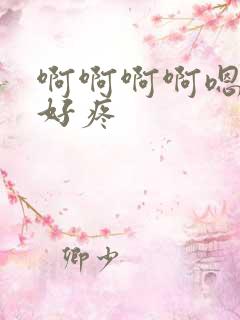 啊啊啊啊嗯
好疼
卿少